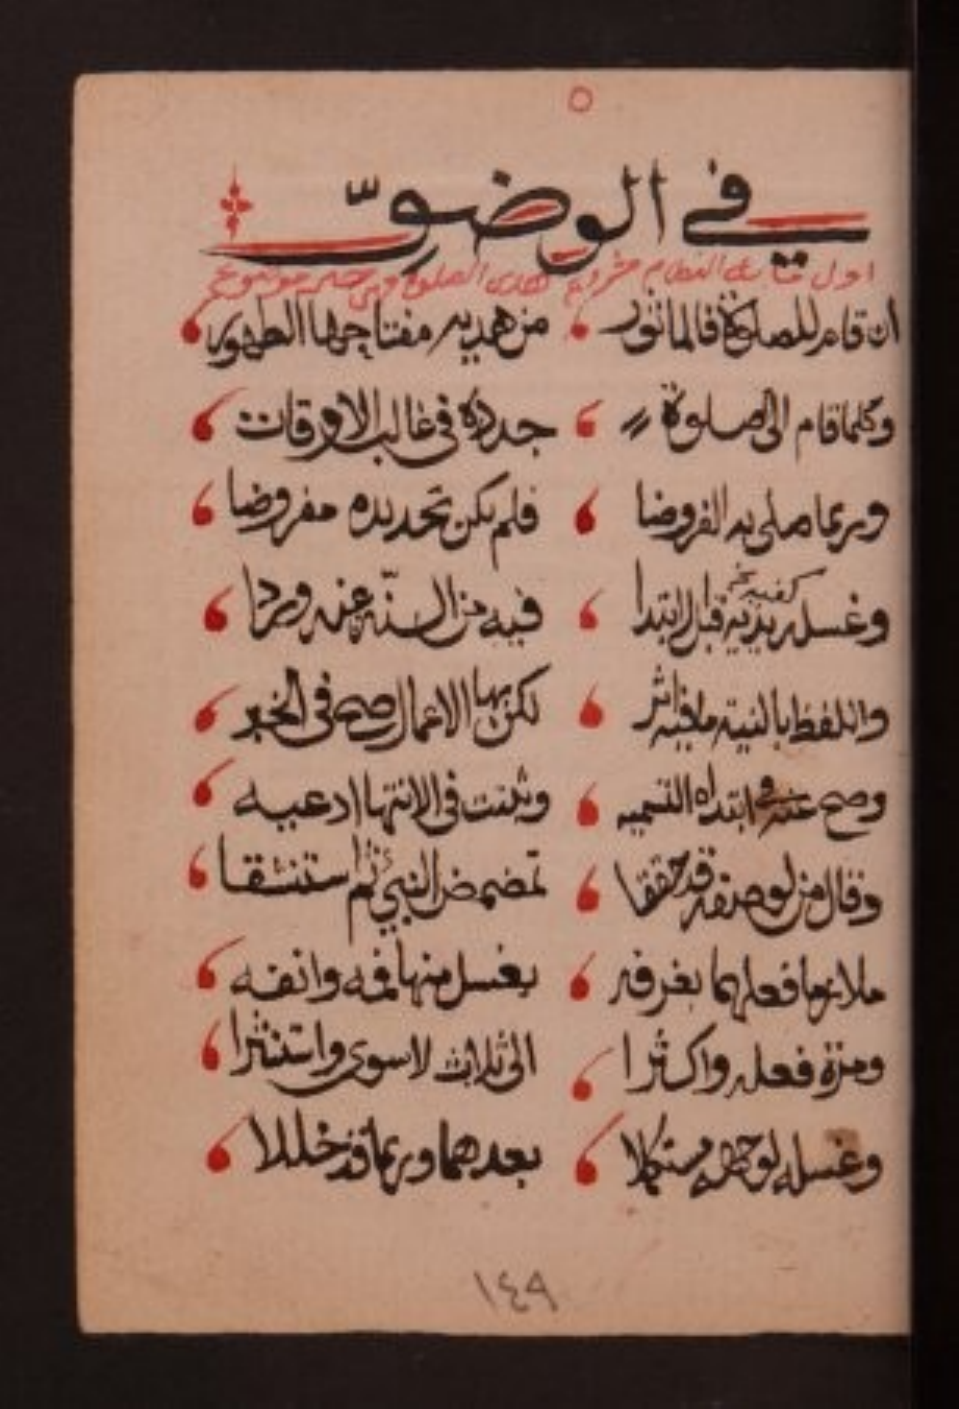 ٥
في الوضوّ
اول
ان قام للصلوة فالماثور من هديه مفتاحها الطهور
وكلما قام الى صلوة جدده في غالب الاوقات
وربما صلى به الفروضا فلم يكن تجديده مفروضا
كفيه
وغسل يديه قبل الابتدا فيه من السنّة عنه وردا
واللفظ بالنية ما فيه اثر لكن بها الاعمال صح في الخبر
وصح عنه في ابتداه التسميه وثبتت في الانتها ادعيه
وقال من لوصفه قد حققا تمضمض النبي ثم استنشقا
ملا بها فعلهما بغرفه يغسل منها فمه وانفه
ومرة فعله واكثرا الى ثلاث لا سوى واستنثرا
وغسله لوجهه مستكملا بعدهما وربما قد خللا
١٤٩